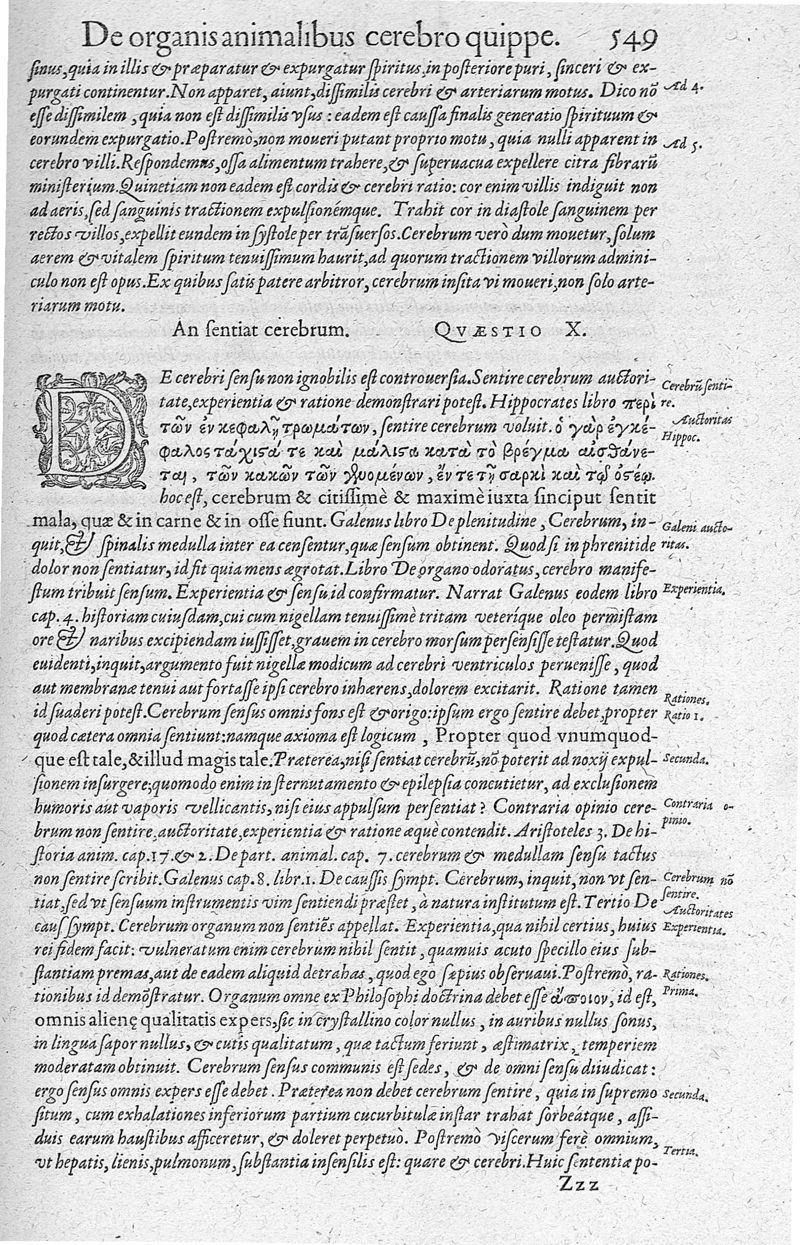 De organis animalibus cerebro quippe. 549
sinus, quia in illis & præparatur & expurgatur spiritus, in posteriore puri, sinceri & ex-
purgati continentur. Non apparet, aiunt, dissimilis cerebri & arteriarum motus. Dico nō
Ad 4.
esse dissimilem, quia non est dissimilis vsus: eadem est caussa finalis generatio spirituum &
eorundem expurgatio. Postremò, non moueri putant proprio motu, quia nulli apparent in
Ad 5.
cerebro villi. Respondemus, ossa alimentum trahere, & superuacua expellere citra fibrarū
ministerium. Quinetiam non eadem est cordis & cerebri ratio: cor enim villis indiguit non
ad aeris, sed sanguinis tractionem expulsionémque. Trahit cor in diastole sanguinem per
rectos villos, expellit eundem in systole per trāsuersos. Cerebrum verò dum mouetur, solum
aerem & vitalem spiritum tenuissimum haurit, ad quorum tractionem villorum admini-
culo non est opus. Ex quibus satis patere arbitror, cerebrum insita vi moueri, non solo arte-
riarum motu.
An sentiat cerebrum. QVÆSTIO X.
DE cerebri sensu non ignobilis est controuersia. Sentire cerebrum auctori-
Cerebrū senti-
re.
tate, experientia & ratione demonstrari potest. Hippocrates libro περὶ
τῶν ἐν κεφαλῇ τρωμάτων, sentire cerebrum voluit. ὁ γὰρ ἐγκέ-
Auctoritas
Hippoc.
φαλος τάχιστά τε καὶ μάλιστα κατὰ τὸ βρέγμα αἰσθάνε-
ται, τῶν κακῶν τῶν γινομένων, ἔν τε τῇ σαρκὶ καὶ τῷ ὀστέῳ.
hoc est, cerebrum & citissimè & maximè iuxta sinciput sentit
mala, quæ & in carne & in osse fiunt. Galenus libro De plenitudine, Cerebrum, in-
Galeni aucto-
ritas.
quit, & spinalis medulla inter ea censentur, quæ sensum obtinent. Quod si in phrenitide
dolor non sentiatur, id fit quia mens ægrotat. Libro De organo odoratus, cerebro manife-
stum tribuit sensum. Experientia & sensu id confirmatur. Narrat Galenus eodem libro
Experientia.
cap. 4. historiam cuiusdam, cui cum nigellam tenuissimè tritam veterique oleo permistam
ore & naribus excipiendam iussisset, grauem in cerebro morsum persensisse testatur. Quod
euidenti, inquit, argumento fuit nigellæ modicum ad cerebri ventriculos peruenisse, quod
aut membranæ tenui aut fortasse ipsi cerebro inhærens, dolorem excitarit. Ratione tamen
Rationes.
id suaderi potest. Cerebrum sensus omnis fons est & origo: ipsum ergo sentire debet, propter
Ratio 1.
quod cætera omnia sentiunt: namque axioma est logicum, Propter quod vnumquod-
que est tale, & illud magis tale. Præterea, nisi sentiat cerebrū, nō poterit ad noxij expul-
Secunda.
sionem insurgere; quomodo enim in sternutamento & epilepsia concutietur, ad exclusionem
humoris aut vaporis vellicantis, nisi eius appulsum persentiat? Contraria opinio cere-
Contraria o-
pinio.
brum non sentire, auctoritate, experientia & ratione æquè contendit. Aristoteles 3. De hi-
storia anim. cap. 17. & 2. De part. animal. cap. 7. cerebrum & medullam sensu tactus
non sentire scribit. Galenus cap. 8. libr. 1. De caussis sympt. Cerebrum, inquit, non vt sen-
Cerebrum nō
sentire.
tiat, sed vt sensuum instrumentis vim sentiendi præstet, à natura institutum est. Tertio De
Auctoritates
caus sympt. Cerebrum organum non sentiēs appellat. Experientia, qua nihil certius, huius
Experientia.
rei fidem facit: vulneratum enim cerebrum nihil sentit, quamuis acuto specillo eius sub-
stantiam premas, aut de eadem aliquid detrahas, quod ego sæpius obseruaui. Postremò, ra-
Rationes.
tionibus id demōstratur. Organum omne ex Philosophi doctrina debet esse ἄποιον, id est,
Prima.
omnis alienę qualitatis expers, sic in crystallino color nullus, in auribus nullus sonus,
in lingua sapor nullus, & cutis qualitatum, quæ tactum feriunt, æstimatrix, temperiem
moderatam obtinuit. Cerebrum sensus communis est sedes, & de omni sensu diiudicat:
ergo sensus omnis expers esse debet. Præterea non debet cerebrum sentire, quia in supremo
Secunda.
situm, cum exhalationes inferiorum partium cucurbitulæ instar trahat sorbeátque, assi-
duis earum haustibus afficeretur, & doleret perpetuò. Postremò viscerum ferè omnium,
vt hepatis, lienis, pulmonum, substantia insensilis est: quare & cerebri. Huic sententiæ po-
Tertia.
Zzz